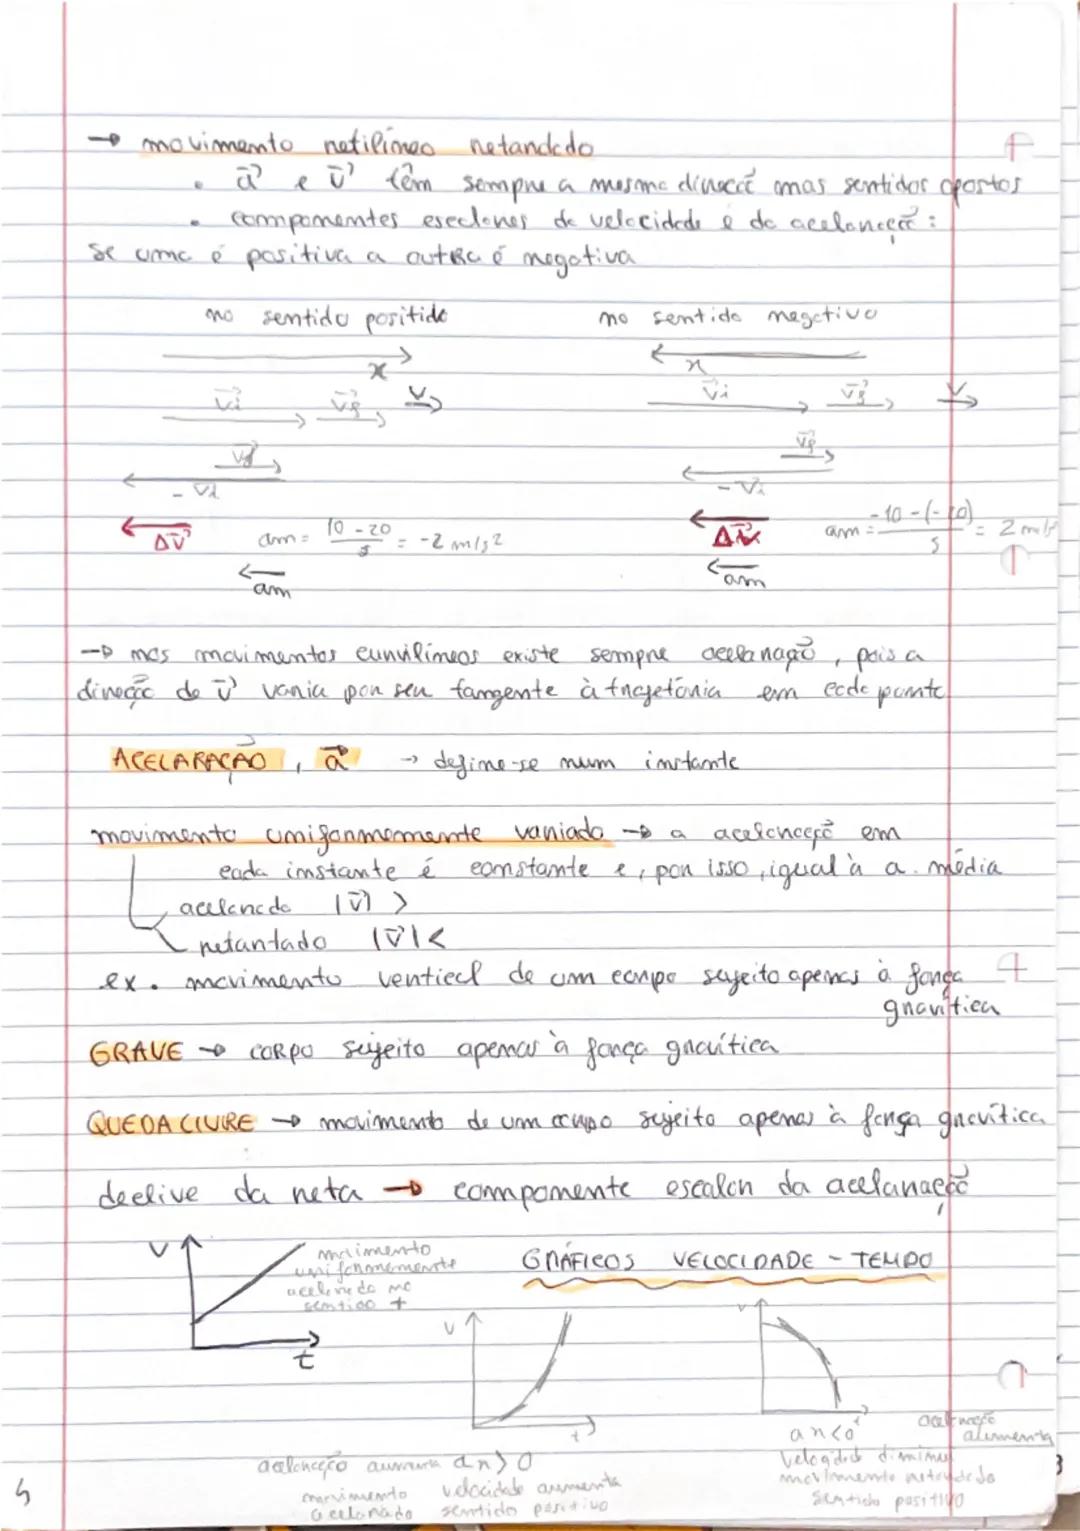 → movimento retilíneo retardado
• a⃗ e v⃗ têm sempre a mesma direção mas sentidos opostos
• componentes escalares da velocidade e da aceleração:
se uma é positiva a outra é negativa
no sentido positido
no sentido negativo
x
x
v⃗i v⃗f v
v⃗i v⃗f v
v⃗f
v⃗f
- v⃗i
- v⃗i
Δv⃗ am = 10 - 20 / 5 = -2 m/s2
Δv⃗ am = -10 - (-20) / 5 = 2 m/s
am
am
→ nos movimentos curvilíneos existe sempre acelaração, pois a
direção de v⃗ varia por ser tangente à trajetória em cada ponto
ACELARAÇÃO, a⃗ → define-se num instante
movimento uniformemente variado → a aceleração em
cada instante é constante e, por isso, igual à a. média
acelerado |v⃗| >
retardado |v⃗| <
ex. movimento vertical de um corpo sujeito apenas à força
gravítica
GRAVE → CORPO sujeito apenas à força gravítica
QUEDA LIVRE → movimento de um corpo sujeito apenas à força gravítica
declive da reta → componente escalar da acelaração
v
movimento
uniformemente
acelerado no
sentido +
t
GRÁFICOS VELOCIDADE - TEMPO
v
t
v
t
aceleração aumenta ax > 0
movimento acelarado
velocidade aumenta
sentido positivo
ax < 0
aceleração aumenta
velocidade diminui
movimento retardado
sentido positivo
5